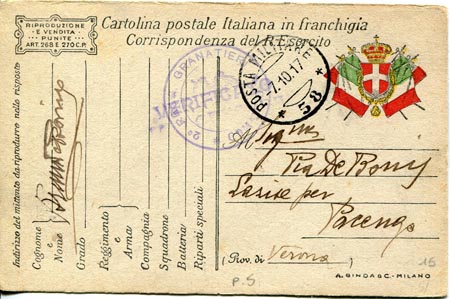 RIPRODUZIONE
E VENDITA
PUNITE
ART. 268 E 270 C.P.
Cartolina postale Italiana in franchigia
Corrispondenza del R. Esercito
GRANATIERI
VERIFICATO
POSTA MILITARE
7.10.17
* 58 *
Pia De Bonis
Lasise per
Pacengo
(Prov. di Verona )
Indirizzo del mittente da riprodurre nello risposto
Cognome
e
Nome
Grado
Reggimento
e
Arma
Compagnia
Squadrone
Batteria
Riparti speciali
P.S
15
A. GINDA & C. - MILANO